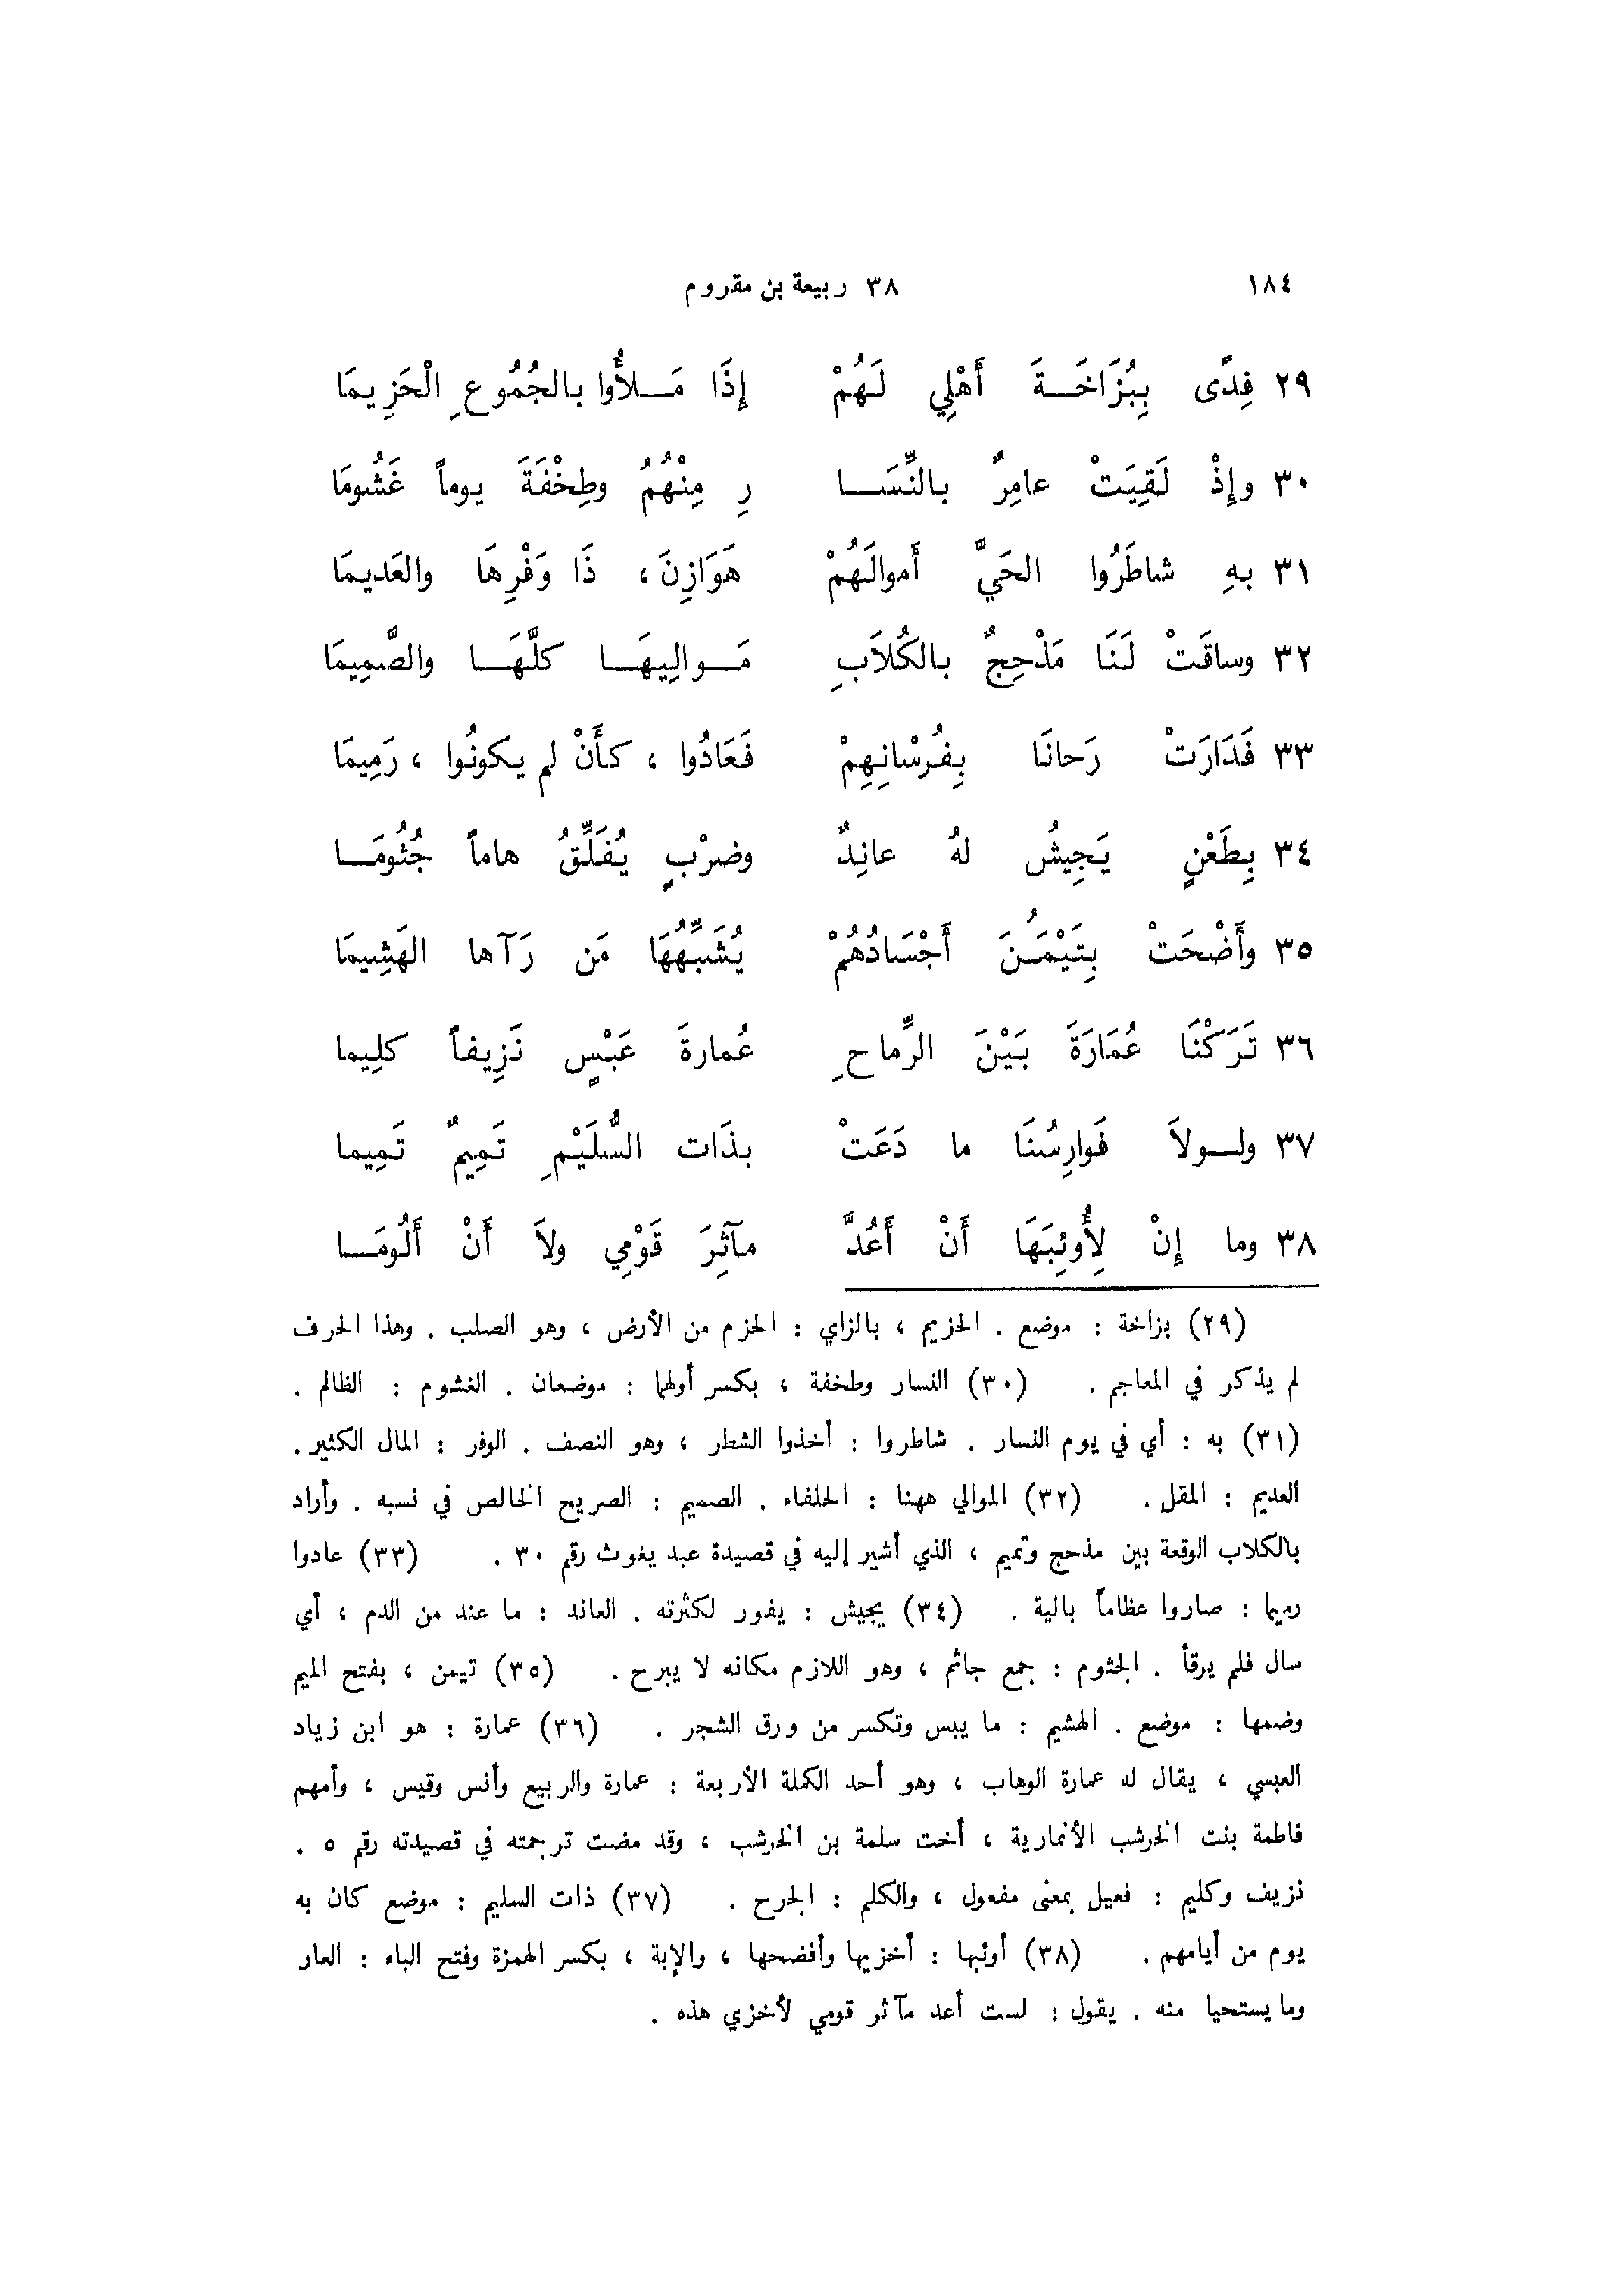 ١٨٤ ٣٨ ربيعة بن مقروم
٢٩ فِدًى بِبُزَاخَةَ أَهْلِي لَهُمْ إِذَا مَلأُوا بالجُمُوعِ الْحَزِيمَا
٣٠ وإِذْ لَقِيَتْ عامِرٌ بالنِّسَا رِ مِنْهُمْ وطِخْفَةَ يوماً غَشُومَا
٣١ بهِ شاطَرُوا الحَيَّ أَموالَهُمْ هَوَازِنَ، ذَا وَفْرِهَا والعَديمَا
٣٢ وساقَتْ لَنَا مَذْحِجٌ بالكُلاَبِ مَوالِيهَا كلَّهَا والصَّمِيمَا
٣٣ فَدَارَتْ رَحانَا بِفُرْسَانِهِمْ فَعَادُوا ، كأَنْ لم يكونُوا ، رَمِيمَا
٣٤ بِطَعْنٍ يَجِيشُ لهُ عانِدٌ وضرْبٍ يُفَلِّقُ هاماً جُثُومَا
٣٥ وأَضْحَتْ بِتَيْمَُنَ أَجْسَادُهُمْ يُشَبِّهُهَا مَن رَآها الهَشِيمَا
٣٦ تَرَكْنَا عُمَارَةَ بَيْنَ الرِّماحِ عُمارةَ عَبْسٍ نَزِيفاً كلِيما
٣٧ ولولاَ فَوارِسُنَا ما دَعَتْ بذَات السُّلَيْمِ تَمِيمٌ تَمِيما
٣٨ وما إِنْ لِأُوئِبَهَا أَنْ أَعُدَّ مآثِرَ قَوْمِي ولاَ أَنْ أَلُومَا
(٢٩) بزاخة : موضع . الحزيم ، بالزاي : الحزم من الأرض ، وهو الصلب . وهذا الحرف
لم يذكر في المعاجم . (٣٠) النسار وطخفة ، بكسر أولهما : موضعان . الغشوم : الظالم .
(٣١) به : أي في يوم النسار . شاطروا : أخذوا الشطر ، وهو النصف . الوفر : المال الكثير .
العديم : المقل . (٣٢) الموالي ههنا : الحلفاء . الصميم : الصريح الخالص في نسبه . وأراد
بالكلاب الوقعة بين مذحج وتميم ، الذي أشير إليه في قصيدة عبد يغوث رقم ٣٠ . (٣٣) عادوا
رميما : صاروا عظاماً بالية . (٣٤) يجيش : يفور لكثرته . العاند : ما عند من الدم ، أي
سال فلم يرقأ . الجثوم : جمع جاثم ، وهو اللازم مكانه لا يبرح . (٣٥) تيمن ، بفتح الميم
وضمها : موضع . الهشيم : ما يبس وتكسر من ورق الشجر . (٣٦) عمارة : هو ابن زياد
العبسي ، يقال له عمارة الوهاب ، وهو أحد الكملة الأربعة : عمارة والربيع وأنس وقيس ، وأمهم
فاطمة بنت الخرشب الأنمارية ، أخت سلمة بن الخرشب ، وقد مضت ترجمته في قصيدته رقم ٥ .
نزيف وكليم : فعيل بمعنى مفعول ، والكلم : الجرح . (٣٧) ذات السليم : موضع كان به
يوم من أيامهم . (٣٨) أوئبها : أخزيها وأفضحها ، والإبة ، بكسر الهمزة وفتح الباء : العار
وما يستحيا منه . يقول : لست أعد مآثر قومي لأخزي هذه .